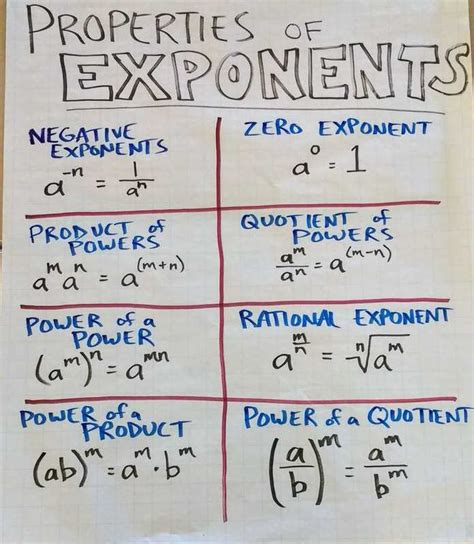 PROPERTIES OF
EXPONENTS
NEGATIVE
EXPONENTS
a⁻ⁿ = 1/aⁿ
ZERO EXPONENT
a⁰ = 1
PRODUCT of
POWERS
aᵐaⁿ = a^(m+n)
QUOTIENT of
POWERS
aᵐ/aⁿ = a^(m-n)
POWER of a
POWER
(aᵐ)ⁿ = aᵐⁿ
RATIONAL EXPONENT
a^(m/n) = ⁿ√aᵐ
POWER of a
PRODUCT
(ab)ᵐ = aᵐ · bᵐ
POWER of a QUOTIENT
(a/b)ᵐ = aᵐ/bᵐ